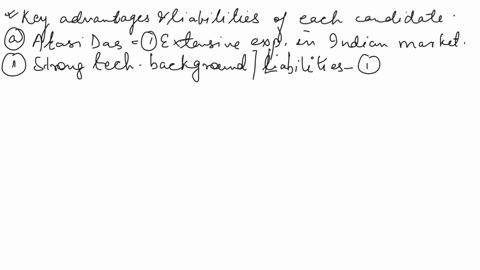 * Key advantages & liabilities of each candidate.
(a) Atasi Das = (1) Extensive exp. in Indian market.
(1) Strong tech. background / liabilities - (1)